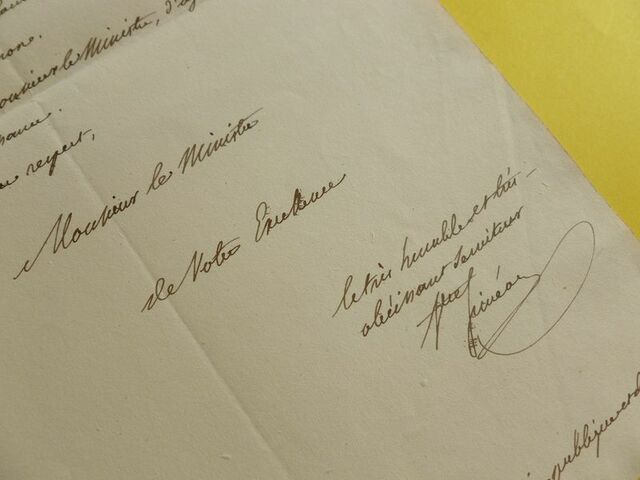 Monsieur le Ministre, d'
respect,
Monsieur le Ministre
de Votre Excellence
le très humble et très-
obéissant serviteur
publique et d